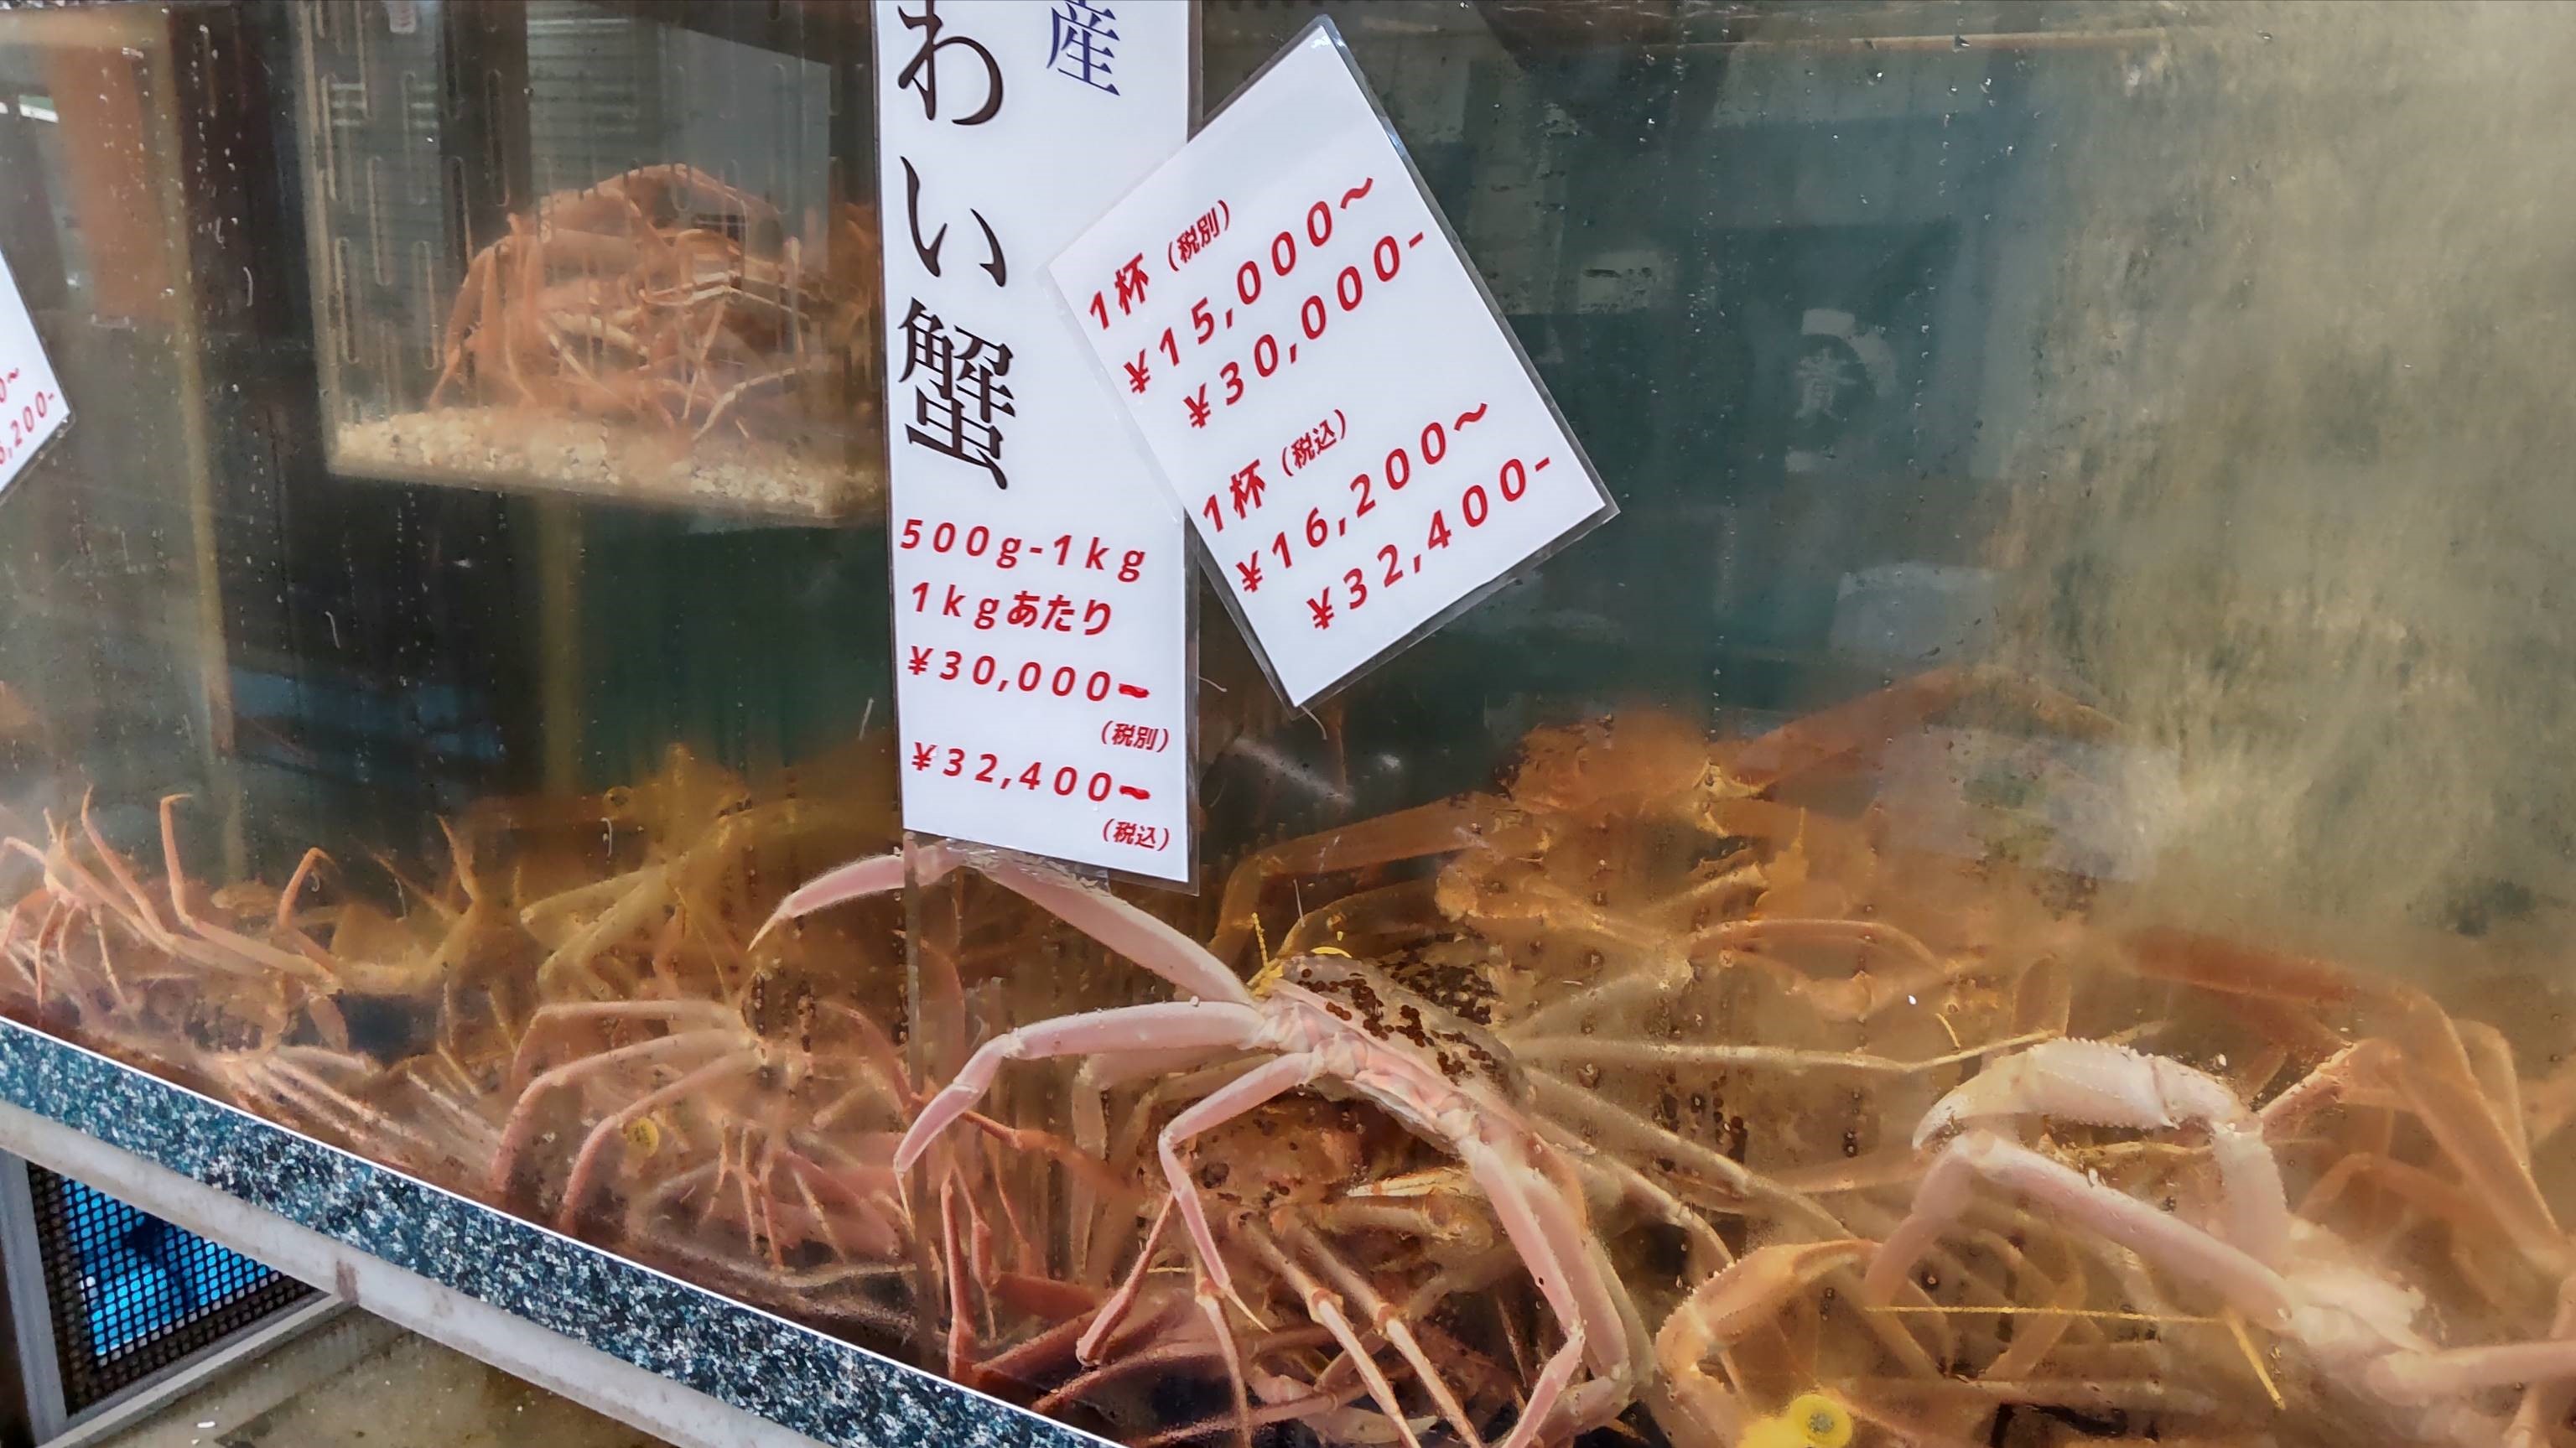 産
わい蟹
500g-1kg
1kgあたり
¥30,000~
(税別)
¥32,400~
(税込)
1杯(税別)
¥15,000~
¥30,000-
1杯(税込)
¥16,200~
¥32,400-
0~
,200-